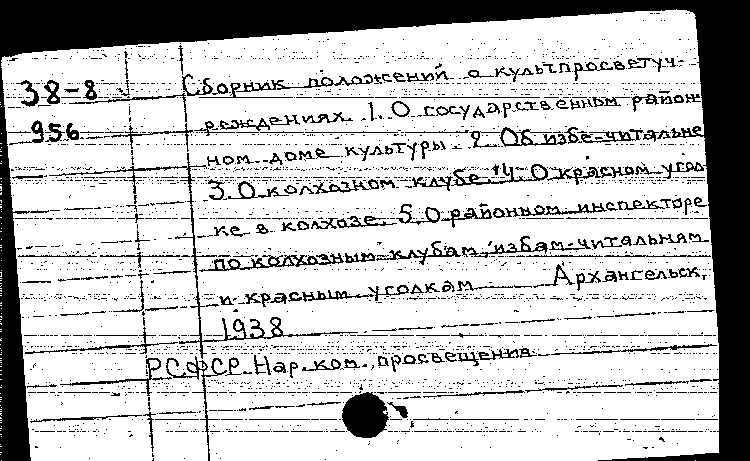 38-8
956
Сборник положений о культпросветуч-
реждениях. 1. О государственном район-
ном доме культуры. 2. Об избе-читальне
3. О колхозном клубе. 4. О красном угол-
ке в колхозе. 5. О районном инспекторе
по колхозным клубам, избам-читальням
и красным уголкам Архангельск,
1938
РСФСР. Нар. ком. просвещения